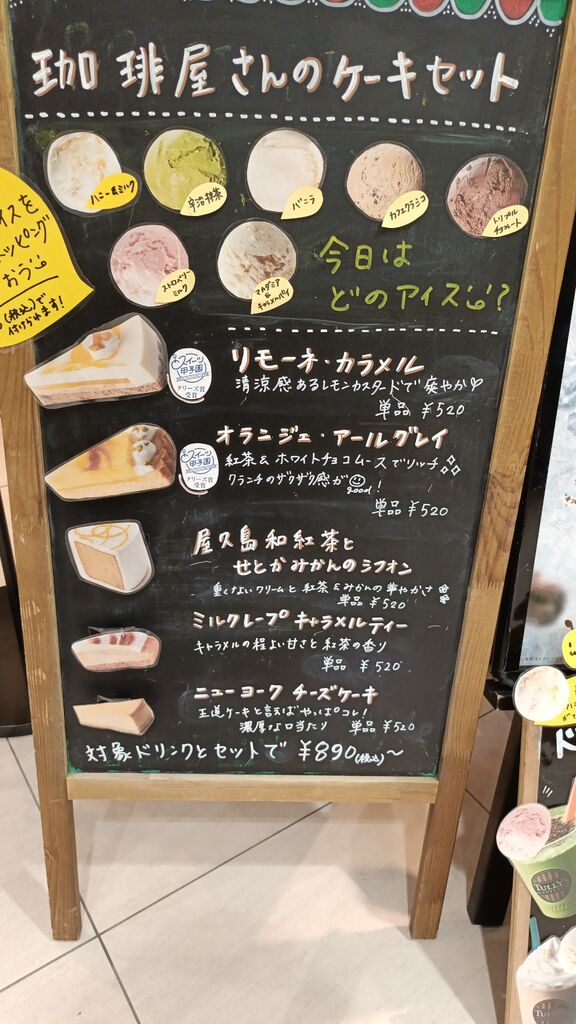 珈琲屋さんのケーキセット
ハニー&ミルク
宇治抹茶
バニラ
カフェクラシコ
トリプル
チョコレート
ストロベリー
ミルク
マカダミア
&
キャラメルパイ
今日は
どのアイス?
イスを
ッピング
おう
(税込)で
付けられます!
リモーネ・カラメル
清涼感あるレモンカスタードで爽やか♡
単品 ¥520
スイーツ
甲子園
タリーズ賞
受賞
オランジェ・アールグレイ
紅茶&ホワイトチョコムースでリッチ
クランチのザクザク感が good!
単品 ¥520
スイーツ
甲子園
タリーズ賞
受賞
屋久島和紅茶と
せとかみかんのシフォン
重くないクリームと紅茶&みかんの華やかさ
単品 ¥520
ミルクレープ キャラメルティー
キャラメルの程よい甘さと紅茶の香り
単品 ¥520
ニューヨーク チーズケーキ
王道ケーキと言えばやっぱコレ!
濃厚な口当たり 単品 ¥520
対象ドリンクとセットで ¥890(税込)~
TULLY'S
TULLY'S